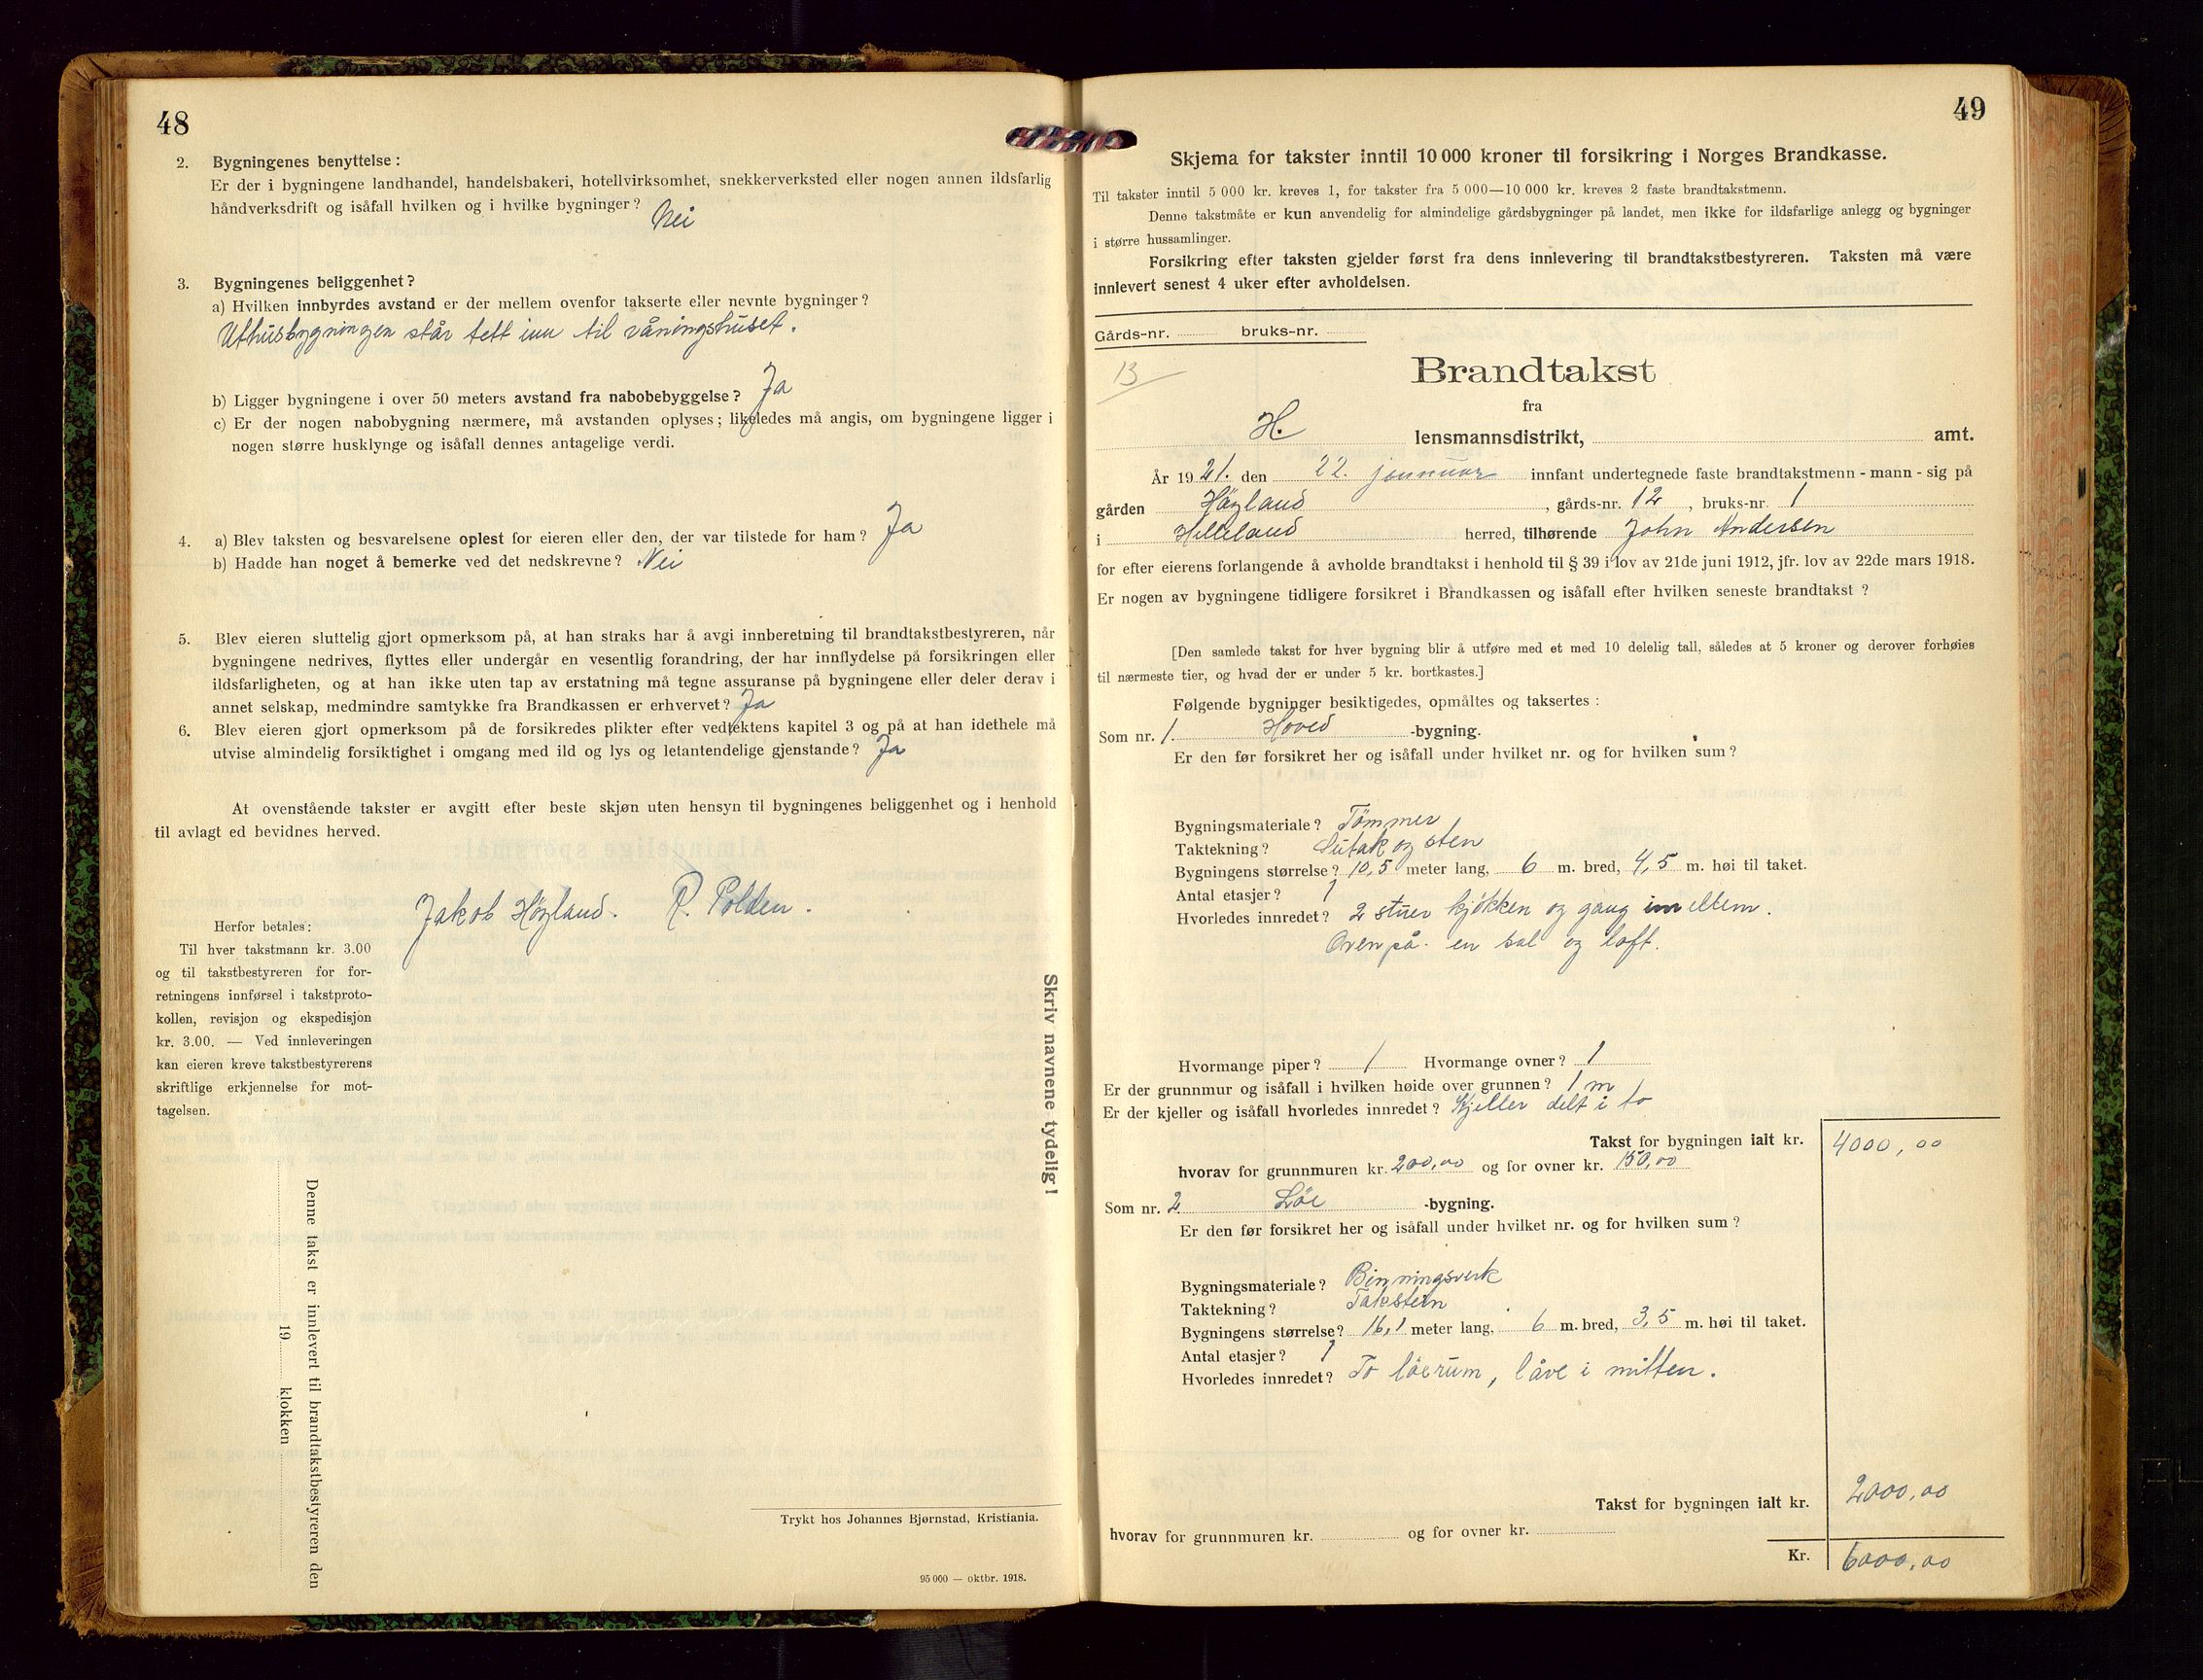 48
2. Bygningenes benyttelse:
Er der i bygningene landhandel, handelsbakeri, hotellvirksomhet, snekkerverksted eller nogen annen ildsfarlig
håndverksdrift og isåfall hvilken og i hvilke bygninger? Nei
3. Bygningenes beliggenhet?
a) Hvilken innbyrdes avstand er der mellem ovenfor takserte eller nevnte bygninger?
Uthusbygningen står tett inn til våningshuset.
b) Ligger bygningene i over 50 meters avstand fra nabobebyggelse? Ja
c) Er der nogen nabobygning nærmere, må avstanden oplyses; likeledes må angis, om bygningene ligger i
nogen større husklynge og isåfall dennes antagelige verdi.
4. a) Blev taksten og besvarelsene oplest for eieren eller den, der var tilstede for ham? Ja
b) Hadde han noget å bemerke ved det nedskrevne? Nei
5. Blev eieren sluttelig gjort opmerksom på, at han straks har å avgi innberetning til brandtakstbestyreren, når
bygningene nedrives, flyttes eller undergår en vesentlig forandring, der har innflydelse på forsikringen eller
ildsfarligheten, og at han ikke uten tap av erstatning må tegne assuranse på bygningene eller deler derav i
annet selskap, medmindre samtykke fra Brandkassen er erhvervet? Ja
6. Blev eieren gjort opmerksom på de forsikredes plikter efter vedtektens kapitel 3 og på at han idethele må
utvise almindelig forsiktighet i omgang med ild og lys og letantendelige gjenstande? Ja
At ovenstående takster er avgitt efter beste skjøn uten hensyn til bygningenes beliggenhet og i henhold
til avlagt ed bevidnes herved.
Jakob Höyland. R. Polden.
Herfor betales:
Til hver takstmann kr. 3.00
og til takstbestyreren for for-
retningens innførsel i takstproto-
kollen, revisjon og ekspedisjon
kr. 3.00. — Ved innleveringen
kan eieren kreve takstbestyrerens
skriftlige erkjennelse for mot-
tagelsen.
Skriv navnene tydelig!
Denne takst er innlevert til brandtakstbestyreren den
19 klokken
Trykt hos Johannes Bjørnstad, Kristiania.
95 000 — oktbr. 1918.
49
Skjema for takster inntil 10 000 kroner til forsikring i Norges Brandkasse.
Til takster inntil 5 000 kr. kreves 1, for takster fra 5 000—10 000 kr. kreves 2 faste brandtakstmenn.
Denne takstmåte er kun anvendelig for almindelige gårdsbygninger på landet, men ikke for ildsfarlige anlegg og bygninger
i større hussamlinger.
Forsikring efter taksten gjelder først fra dens innlevering til brandtakstbestyreren. Taksten må være
innlevert senest 4 uker efter avholdelsen.
Gårds-nr. bruks-nr.
13
Brandtakst
fra
H. lensmannsdistrikt, amt.
År 1921. den 22. januar innfant undertegnede faste brandtakstmenn - mann - sig på
gården Höyland, gårds-nr. 12, bruks-nr. 1
i Helleland herred, tilhørende John Andersen
for efter eierens forlangende å avholde brandtakst i henhold til § 39 i lov av 21de juni 1912, jfr. lov av 22de mars 1918.
Er nogen av bygningene tidligere forsikret i Brandkassen og isåfall efter hvilken seneste brandtakst?
[Den samlede takst for hver bygning blir å utføre med et med 10 delelig tall, således at 5 kroner og derover forhøies
til nærmeste tier, og hvad der er under 5 kr. bortkastes.]
Følgende bygninger besiktigedes, opmåltes og taksertes:
Som nr. 1. Hoved -bygning.
Er den før forsikret her og isåfall under hvilket nr. og for hvilken sum?
Bygningsmateriale? Tömmer
Taktekning? Sutak og sten
Bygningens størrelse? 10,5 meter lang, 6 m. bred, 4,5 m. høi til taket.
Antal etasjer? 1
Hvorledes innredet? 2 stuer kjökken og gang imellem.
Ovenpå en sal og loft.
Hvormange piper? 1 Hvormange ovner? 1
Er der grunnmur og isåfall i hvilken høide over grunnen? 1 m
Er der kjeller og isåfall hvorledes innredet? Kjeller delt i to
Takst for bygningen ialt kr. 4000,00
hvorav for grunnmuren kr. 200,00 og for ovner kr. 150,00
Som nr. 2 Löe -bygning.
Er den før forsikret her og isåfall under hvilket nr. og for hvilken sum?
Bygningsmateriale? Binningsverk
Taktekning? Takstein
Bygningens størrelse? 16,1 meter lang, 6 m. bred, 3,5 m. høi til taket.
Antal etasjer? 1
Hvorledes innredet? To löerum, låve i mitten.
Takst for bygningen ialt kr. 2000,00
hvorav for grunnmuren kr. og for ovner kr.
Kr. 6000,00